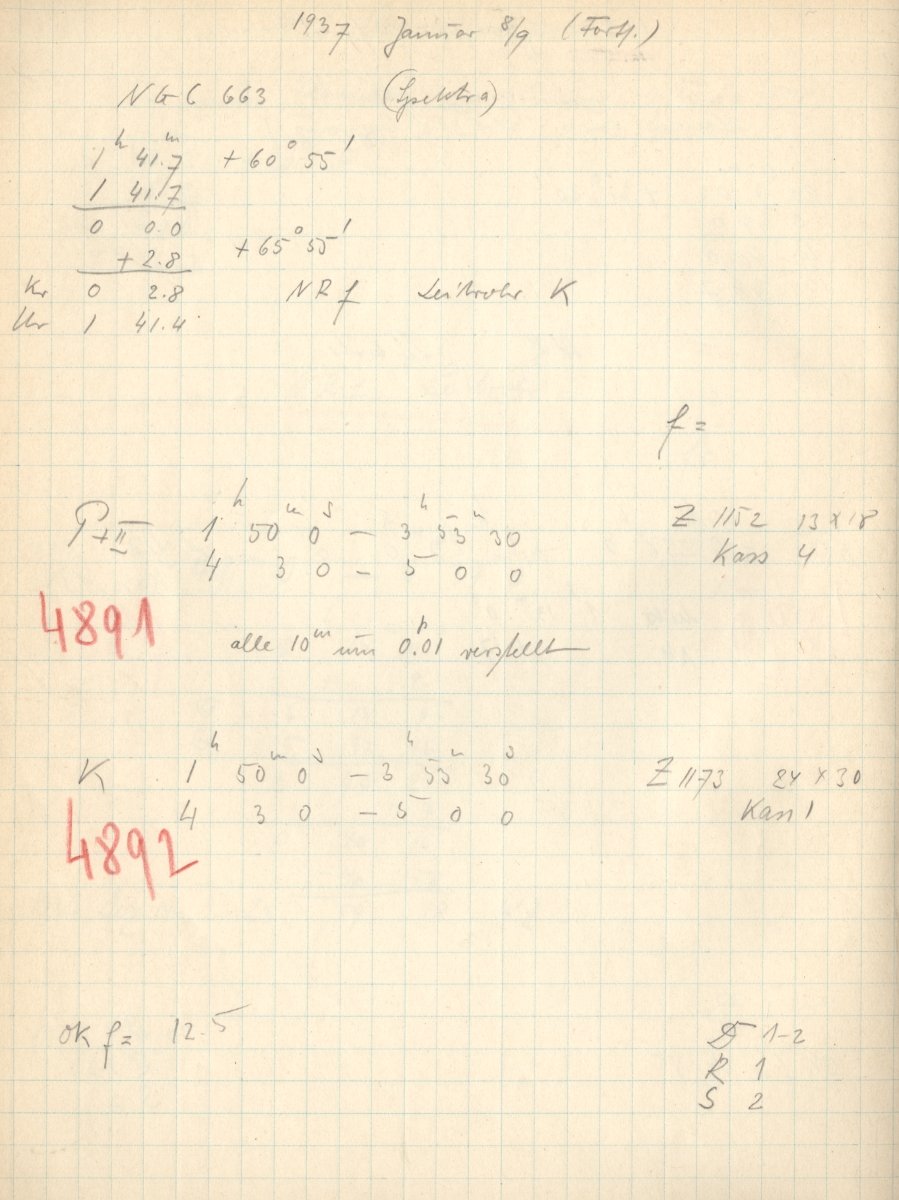 1937 Januar 8/9 (Forts.)
NGC 663 (Spektra)
1ʰ 41.7ᵐ +60° 55'
1 41.7
0 0.0
+2.8 +65° 55'
Kr 0 2.8 NR f Leitrohr K
Uhr 1 41.4
f =
P+II 1ʰ 50ᵐ 0ˢ — 3ʰ 53ᵐ 30 Z 1152 13 x 18
4 3 0 — 5 0 0 Kass 4
4891
alle 10ᵐ um 0.ᵖ01 verstellt
K 1ʰ 50ᵐ 0ˢ — 3ʰ 53ᵐ 30ˢ Z 1173 24 x 30
4 3 0 — 5 0 0 Kass 1
4892
OK f = 12.5
1-2
R 1
S 2